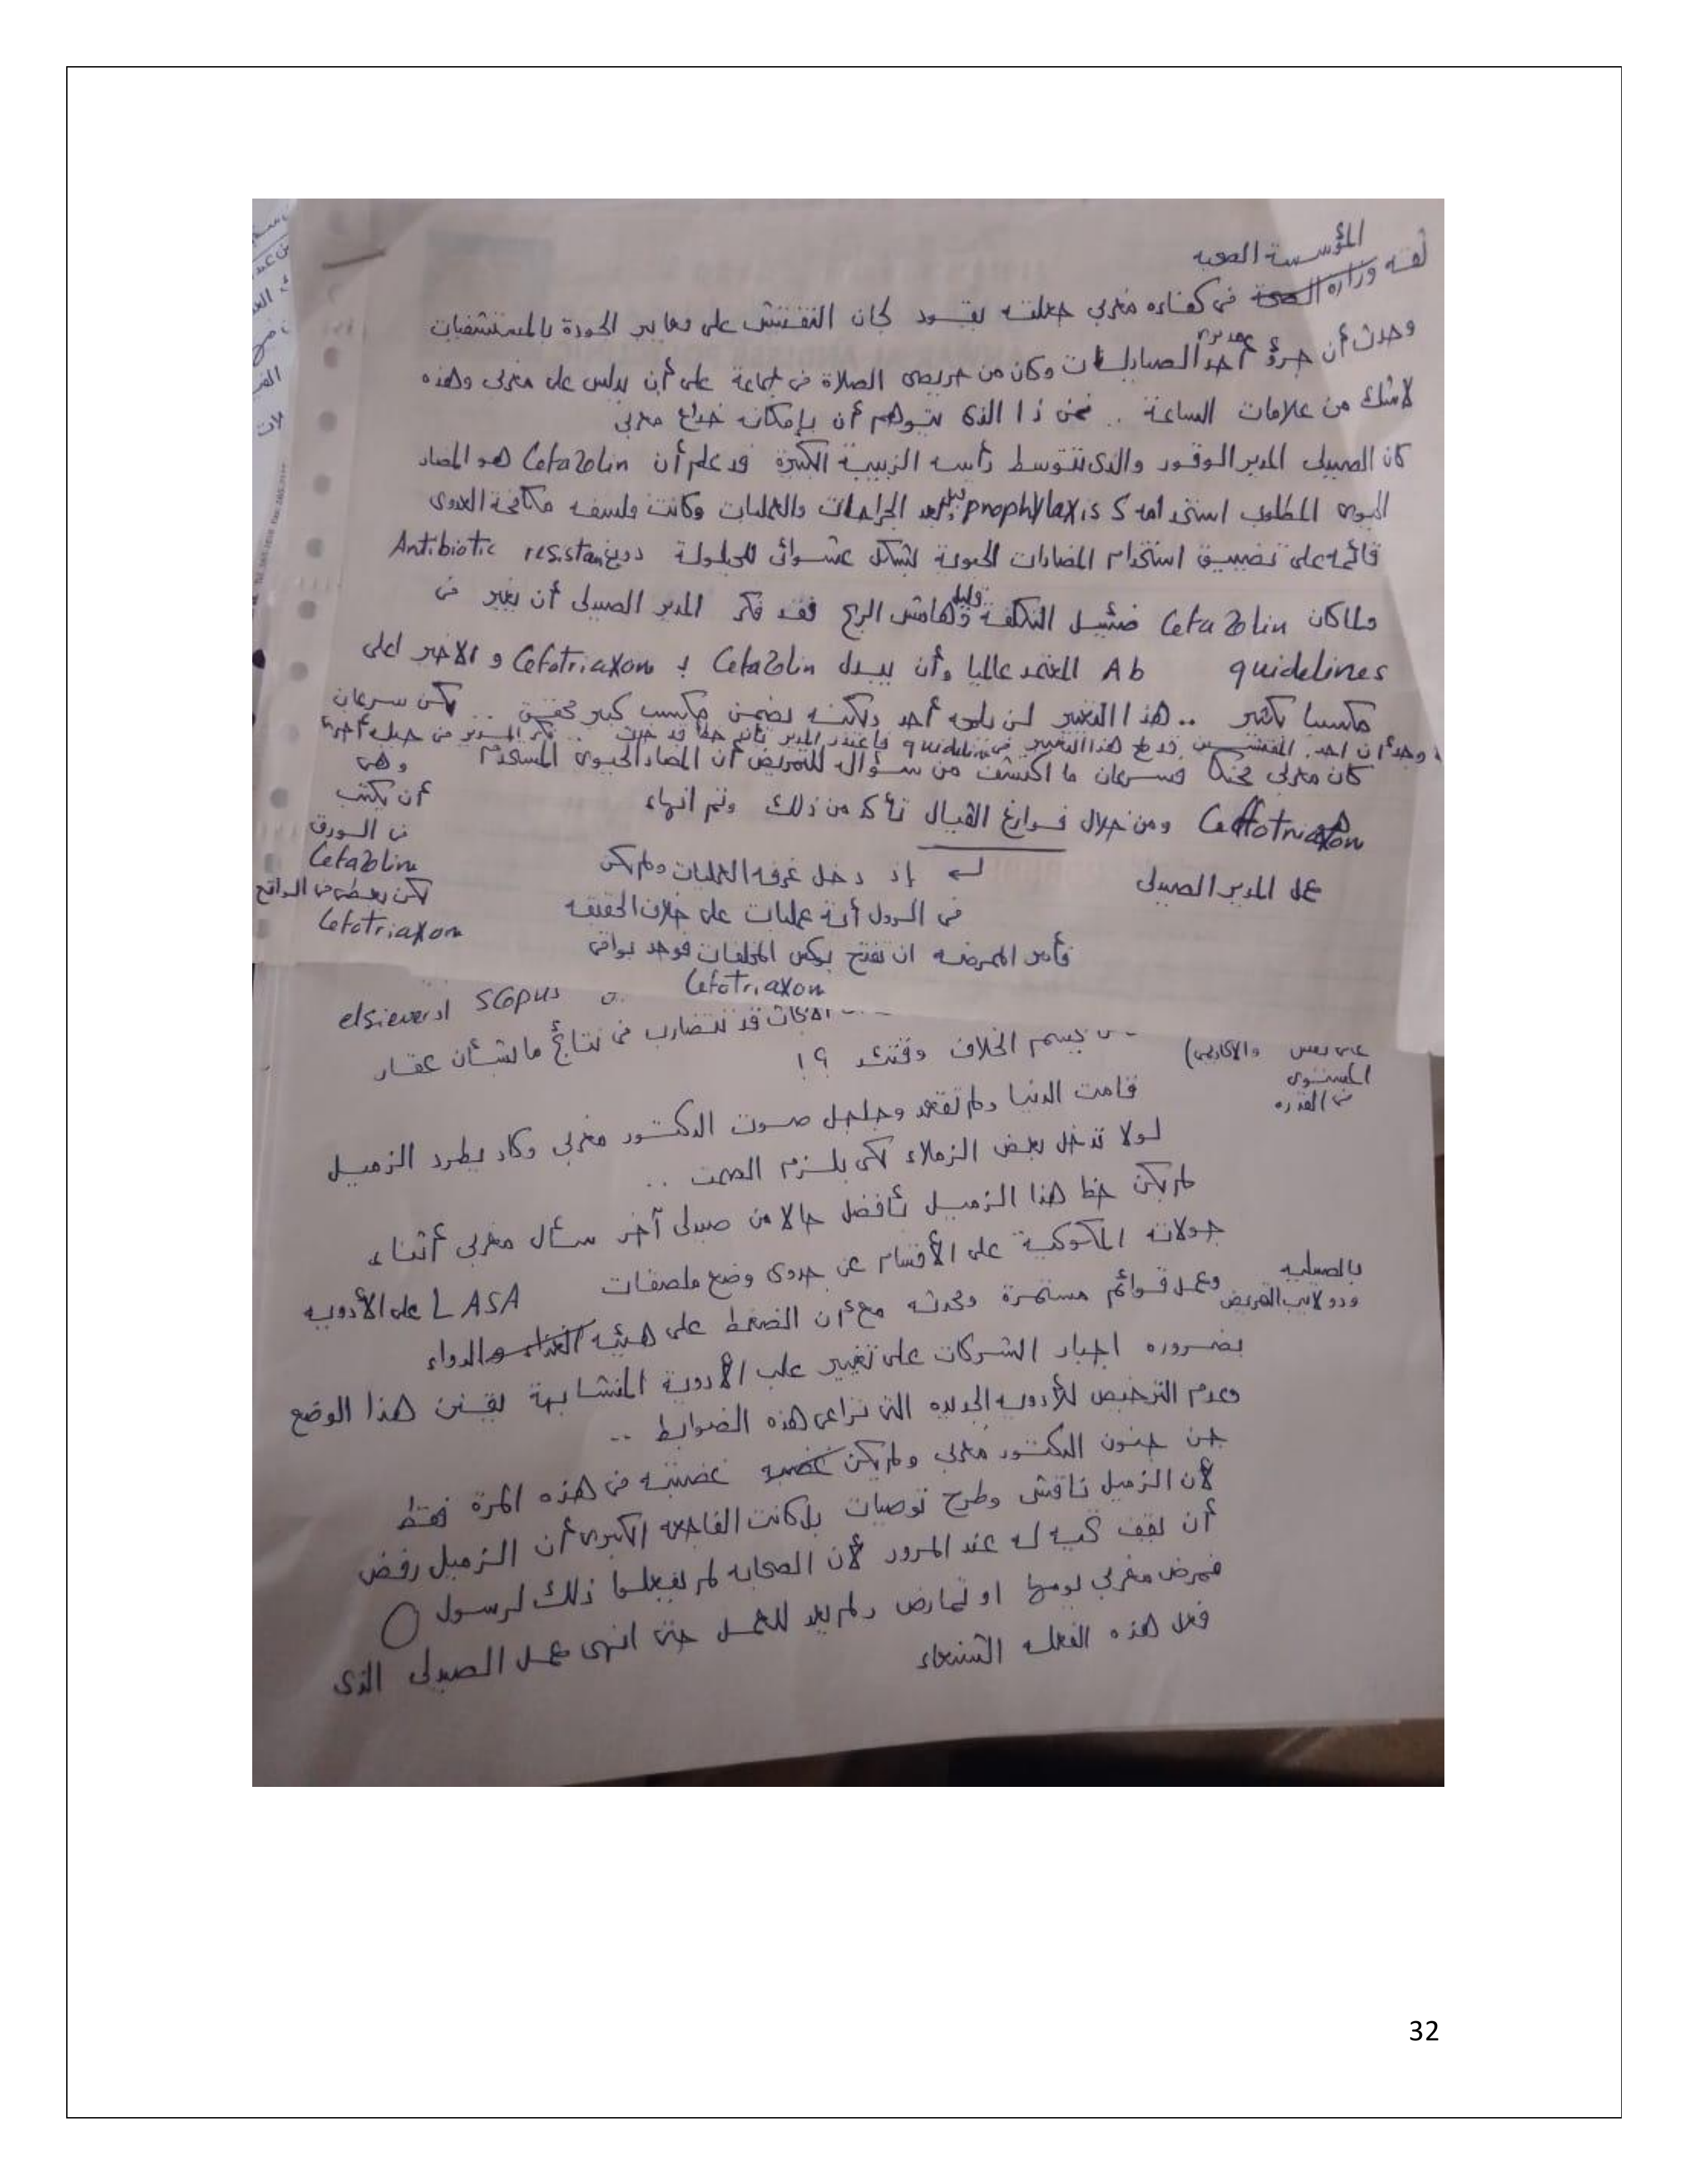 المؤسسة الصحية
ثقة وزارة الصحة في كفاءه مغربي جعلته يقود لجان التفتيش على معايير الجودة بالمستشفيات
وحدث أن جرؤ أحد مديري الصيدليات وكان من حريصي الصلاة في جماعة على أن يدلس على مغربي وهذه
لاشك من علامات الساعة .. فمن ذا الذي يتوهم أن بإمكانه خداع مغربي
كان الصيدلي المدير الوقور والذي تتوسط رأسه الزبيبة الكبيرة قد علم أن Cefazolin هو المضاد
الحيوي المطلوب استخدامه prophylaxis قبل وبعد الجراحات والعمليات وكانت فلسفه مكافحة العدوى
قائمة على تضييق استخدام المضادات الحيوية بشكل عشوائي للحيلولة دون Antibiotic resistance
ولما كان Cefazolin ضئيل التكلفة وقليل هامش الربح فقد فكر المدير الصيدلي أن يغير في
quidelines Ab المعتمد عالميا وأن يبدل Cefazolin بـ Cefotriaxon والاخير اعلى
مكسبا بكثير .. هذا التغيير لن يلمحه أحد ولكنه يضمن مكسب كبير محقق .. لكن سرعان
وجد أن احد المفتشين قد لمح هذا التغيير في quideline فاعتذر المدير بأنه خطأ قد حدث .. فكر المدير في حيلة أخرى
كان مغربي محنكا فسرعان ما اكتشف من سؤال للتمريض أن المضاد الحيوي المستخدم
وهي
أن يكتب
في الورق
Cefazoline
لكن يعطى في الواقع
Cefotriaxon
Ceffotriaxon ومن خلال فوارغ الفيال تأكد من ذلك وتم انهاء
عمل المدير الصيدلي
إذ دخل غرفه العمليات ولم يكن
في الرول أية عمليات على خلاف الحقيقه
فأمر الممرضه ان تفتح بوكس المخلفات فوجد بواقي
Cefotriaxon
elsiever Scopus
قد تتضارب في نتائج ما بشأن عقار
على نفس والأكاديمي)
المستوى
من القدره
يحسم الخلاف وقتئذ ؟!
قامت الدنيا ولم تقعد وجلجل صوت الدكتور مغربي وكاد يطرد الزميل
لولا تدخل بعض الزملاء لكي يلتزم الصمت ..
لم يكن حظ هذا الزميل بأفضل حالا من صيدلي آخر سأل مغربي أثناء
جولاته المكوكية على الأقسام عن جدوى وضع ملصقات LASA على الأدويه
بالصيدليه
ودواليب التمريض
وعمل قوائم مستمرة ومحدثه مع أن الضغط على هيئة الغذاء والدواء
بضروره اجبار الشركات على تغيير علب الأدوية المتشابهة يقنن هذا الوضع
وعدم الترخيص للأدويه الجديده التي تراعي هذه الضوابط ..
جن جنون الدكتور مغربي ولم يكن غضبه غضبته في هذه المرة فقط
لأن الزميل ناقش وطرح توصيات بل كانت الفاجعه الكبرى أن الزميل رفض
أن يقف تحيه له عند المرور لأن الصحابه لم يفعلوا ذلك لرسول
فمرض مغربي يومها او تمارض ولم يعد للعمل حتى انهى عمل الصيدلي الذي
فعل هذه الفعله الشنعاء
32